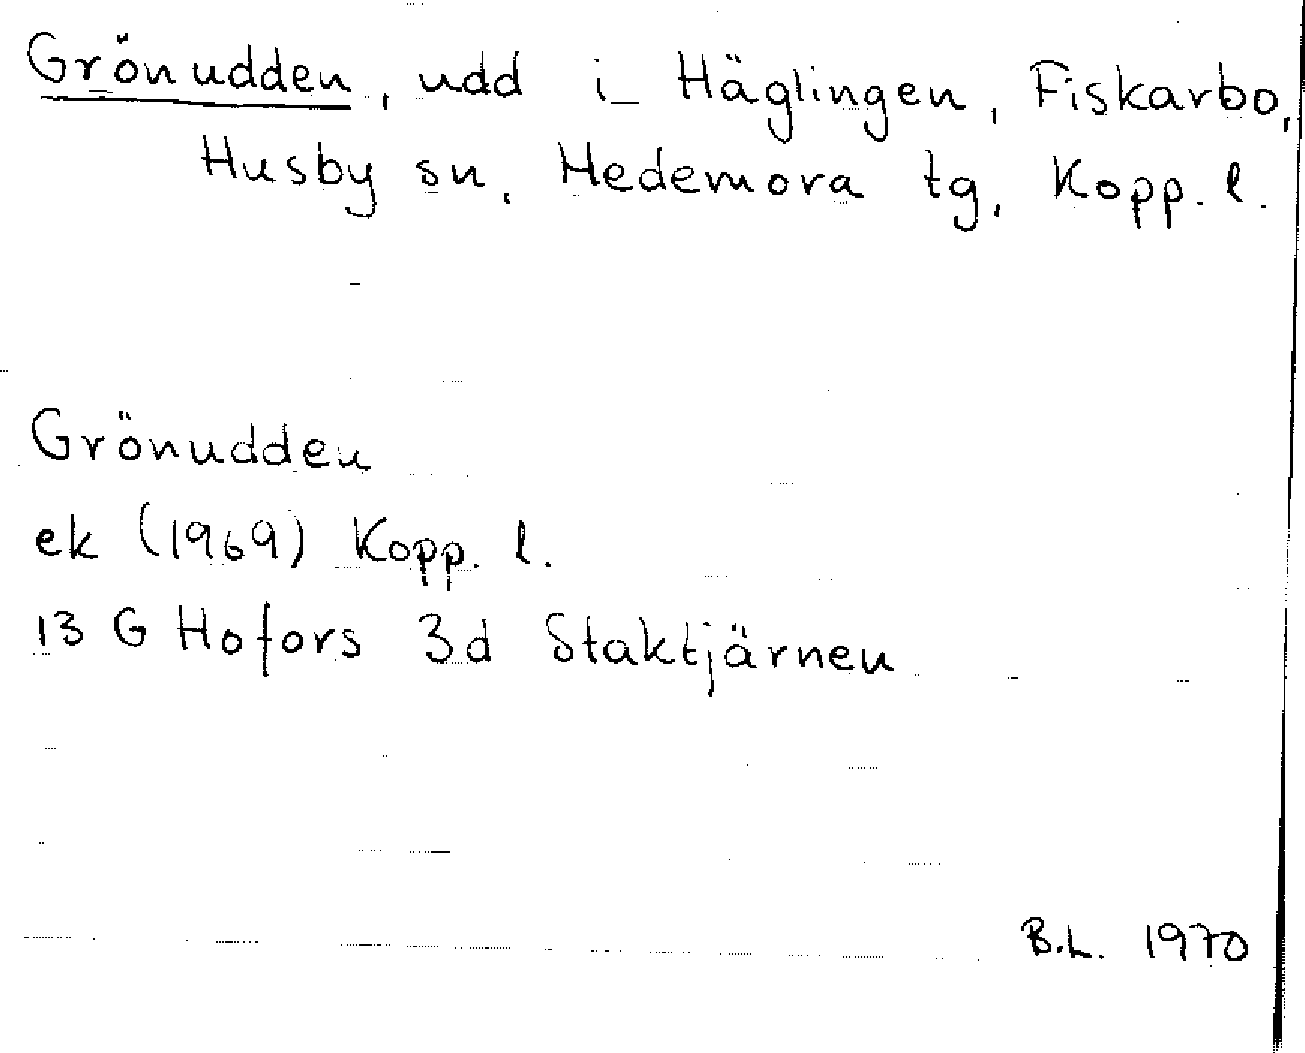 Grönudden, udd i Häglingen, Fiskarbo,
Husby sn, Hedemora tg, Kopp. l.
Grönudden
ek (1969) Kopp. l.
13 G Hofors 3d Staktjärnen
B.L. 1970